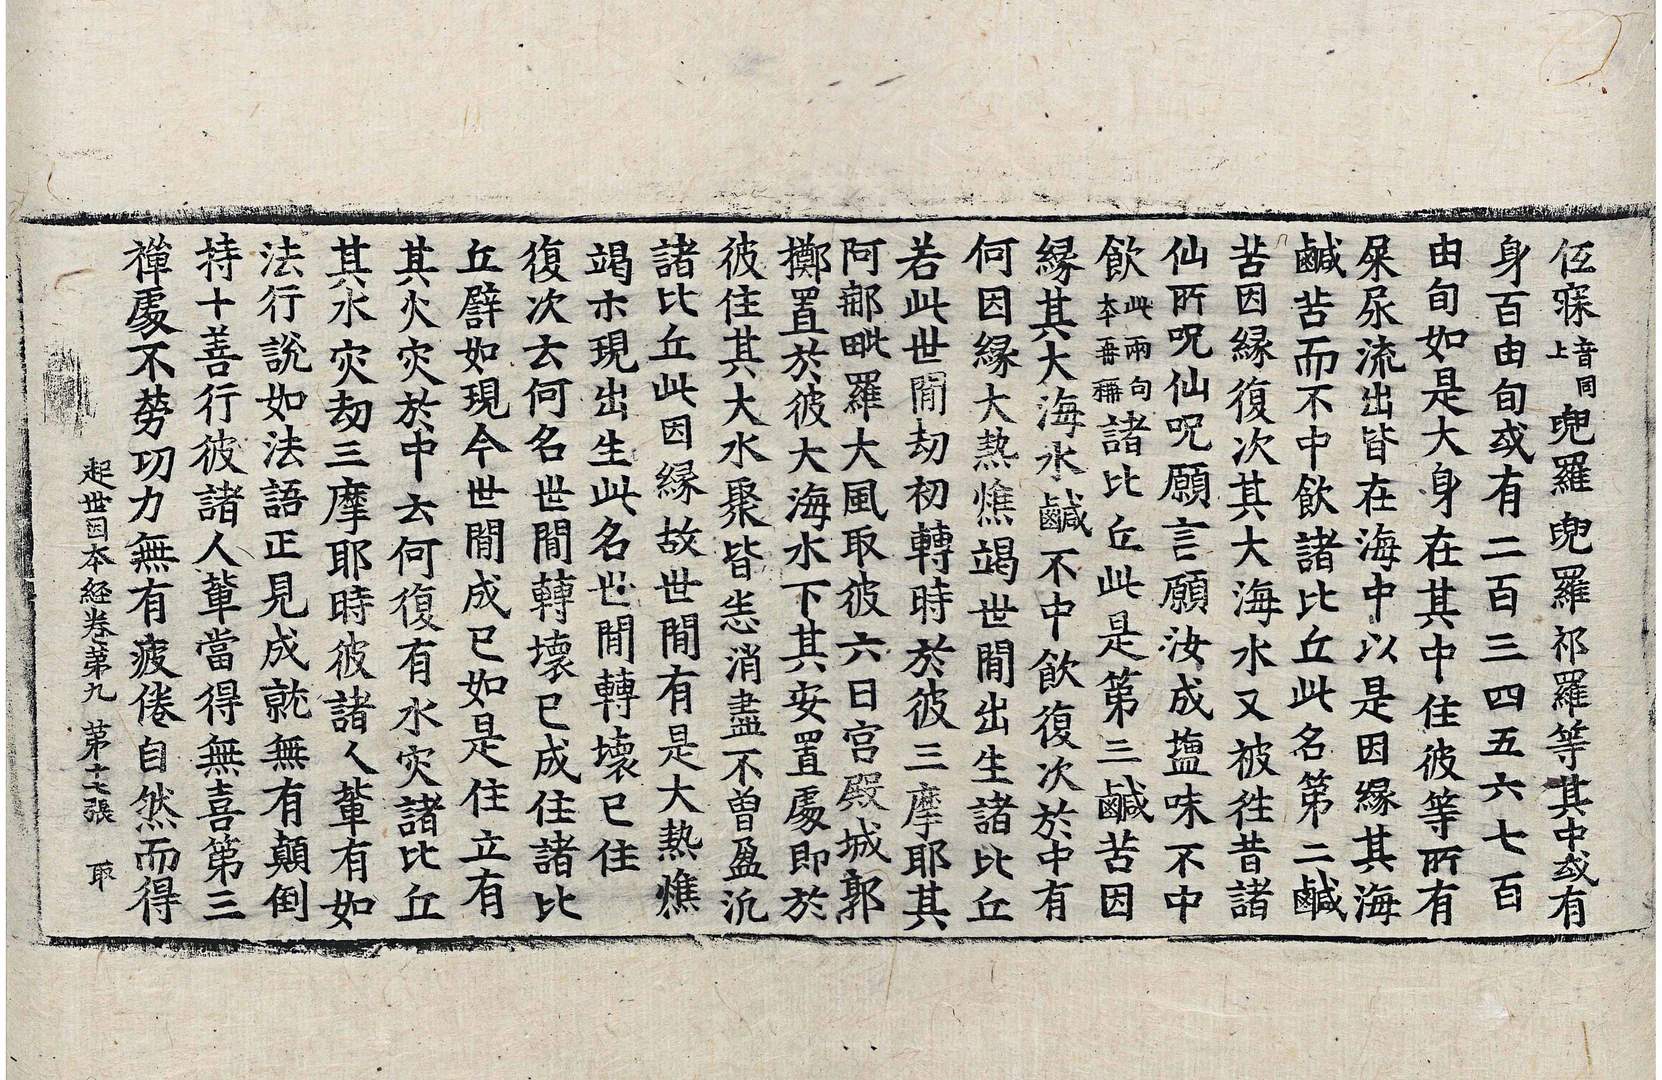 低寐音同上兜羅兜羅祁羅等其中或有
身百由旬或有二百三四五六七百
由旬如是大身在其中住彼等所有
屎尿流出皆在海中以是因緣其海
鹹苦而不中飲諸比丘此名第二鹹
苦因緣復次其大海水又被徃昔諸
仙所呪仙呪願言願汝成塩味不中
飲此兩句本再稱諸比丘此是第三鹹苦因
緣其大海水鹹不中飲復次於中有
何因緣大熱燋竭世間出生諸比丘
若此世間劫初轉時於彼三摩耶其
阿鄃毗羅大風取彼六日宮殿城郭
擲置於彼大海水下其安置處即於
彼住其大水聚皆悉消盡不曾盈汎
諸比丘此因緣故世間有是大熱燋
竭示現出生此名世間轉壞已住
復次云何名世間轉壞已成住諸比
丘譬如現今世間成已如是住立有
其火灾於中云何復有水灾諸比丘
其水灾劫三摩耶時彼諸人輩有如
法行說如法語正見成就無有顛倒
持十善行彼諸人輩當得無喜第三
禪處不勞功力無有疲倦自然而得
起世因本経卷第九 第十七張 取